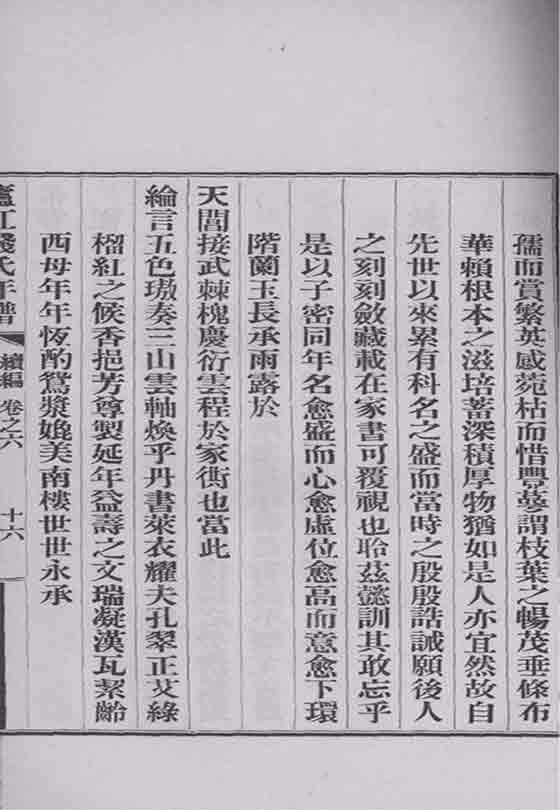 孺而賞繁英感菀枯而惜豐蔘謂枝葉之暢茂垂條布
華賴根本之滋培蓄深積厚物猶如是人亦宜然故自
先世以來累有科名之盛而當時之殷殷誥誡願後人
之刻刻斂藏載在家書可覆視也聆茲懿訓其敢忘乎
是以子密同年名愈盛而心愈虛位愈高而意愈下環
階蘭玉長承雨露於
天閶接武棘槐慶衍雲程於家衖也當此
綸言五色璈奏三山雲軸煥乎丹書萊衣耀夫孔翠正艾綠
榴紅之候香挹芳尊製延年益壽之文瑞凝漢瓦絜齡
西母年年恆酌鴛漿媲美南樓世世永承
廬江錢氏年譜 續編 卷之六 十六